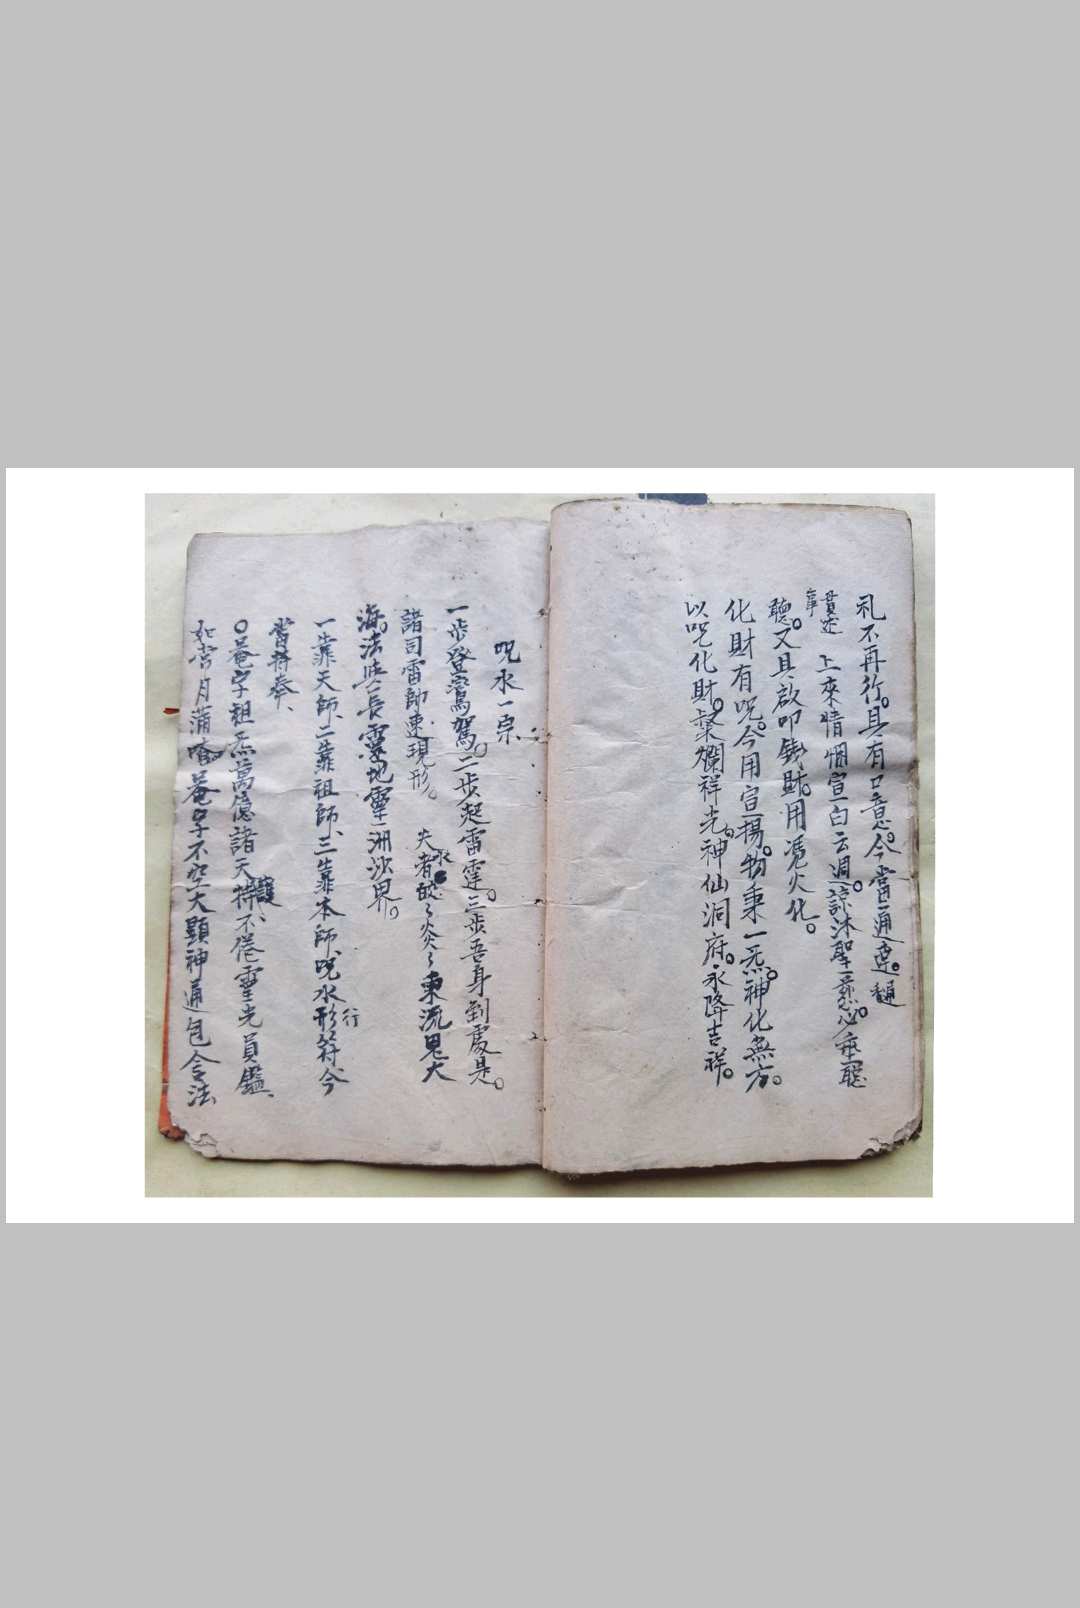 礼不再行。具有口意。今當通
宣述 上來情悃宣白云週。諒沐聖慈。垂聽
聽。又具啟叩錢財。用憑火化。
化財有呪。今用宣揚。物秉一炁。神化無方。
以呪化財。粲爛祥光。神仙洞府。永降吉祥。
呪水一宗
一步登鸞駕。二步起雷霆。三步吾身到處是。
諸司雷帥速現形。 夫水者皎々炎々東流鬼大
海。法與長靈地靈一洲沙界。
一靠天師、二靠祖師、三靠本師、呪水形行符、今
當持奉、
○菴字祖炁萬億諸天持護、不倦靈光員鑑、
如常月蒲唵菴字不空大顯神通包含法